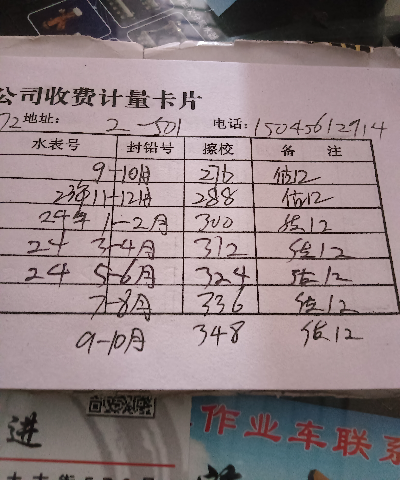 公司收费计量卡片
72 地址: 2-501 电话: 15045612914
水表号 封铅号 擦校 备 注
9-10月 276 估12
23年11-12月 288 估12
24年 1-2月 300 估12
24 3-4月 312 估12
24 5-6月 324 估12
7-8月 336 估12
9-10月 348 估12
进
作业车联系